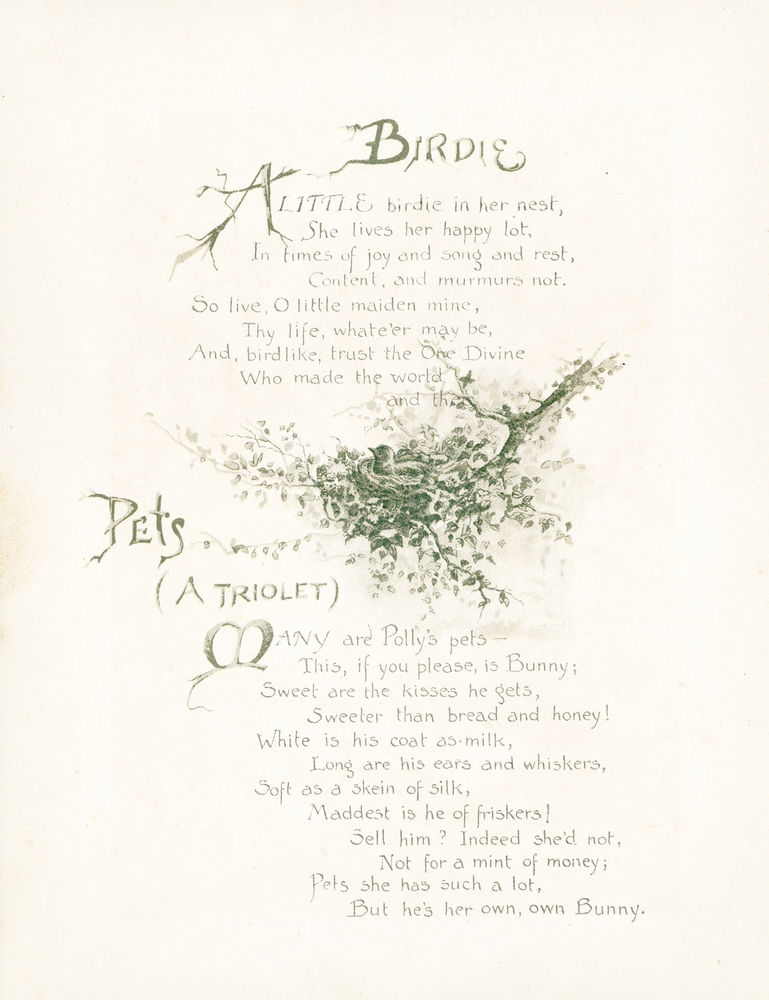 BIRDIE
A LITTLE birdie in her nest,
She lives her happy lot,
In times of joy and song and rest,
Content, and murmurs not.
So live, O little maiden mine,
Thy life, whate'er may be,
And, birdlike, trust the One Divine
Who made the world
and the
PETS
(A TRIOLET)
MANY are Polly's pets—
This, if you please, is Bunny;
Sweet are the kisses he gets,
Sweeter than bread and honey!
White is his coat as milk,
Long are his ears and whiskers,
Soft as a skein of silk,
Maddest is he of friskers!
Sell him? Indeed she'd not,
Not for a mint of money;
Pets she has such a lot,
But he's her own, own Bunny.